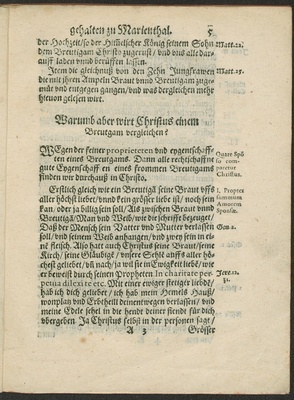 gehalten zu Marienthal. 5
der Hochzeit/so der Himlischer König seinem Sohn Matt.22.
dem Breutgam Christo zugerüst/ vnd vns alle dar-
auff laden vnnd beruffen lassen.
Item die gleichnuß von den Zehn Jungfrawen Matt.25.
die mit jhren Ampeln Braut vnnd Breutgam zuge-
müt vnd entgegen gangen/ vnd was dergleichen mehr
hieuon gelesen wirt.
Warumb aber wirt Christus einem
Breutgam vergleichen?
WEgen der seiner proprieteten vnd eygenschaff-
ten eines Breutgams. Dann alle rechtschaffne
gute Eygenschafften eines frommen Breutgams
finden wir durchauß in Christo.
Quare Spõ
so com-
paretur
Christus.
Erstlich gleich wie ein Breutigã seine Braut vffs
aller höchst liebet/ vnnd kein grösser liebe ist/ noch sein
kan/ oder ja billig sein soll/ Als zwischen Braut vnnd
Breutigã/ Man vnd Weib/ wie die schrifft bezeuget/
Daß der Mensch sein Vatter vnd Mutter verlassen
soll/ vnd seinem Weib anhangen/ vnd zwey sein in ei-
nẽ fleisch. Also hat auch Christus seine Braut/ seine
Kirch/ seine Gläubige/ vnsere Seele auffs aller hö-
chest geliebet/ vñ nach/ ja wil sie in Ewigkeit lieb/ wie
er beweist durch seinen Propheten In charitate per-
petua dilexi te etc. Mit einer ewiger stetiger liebde/
hab ich dich geliebet/ ich hab mein Hemels Hauß/
wonplan vnd Erbtheil deinenwegen verlassen/ vnd
meine Edele sehel in die hende deiner fiende für dich
vbergeben Ja Christus selbst in der personen sagt/
1. Propter
summum
Amorem
Sponsæ.
Gen.2.
Jere.12.
31.
A 3 Grösser